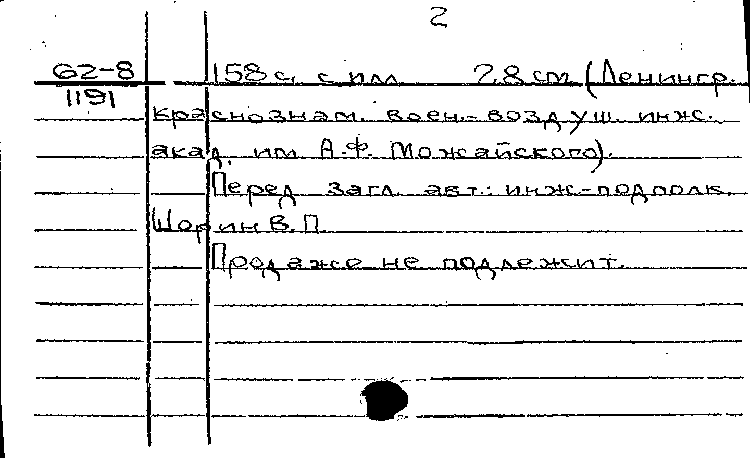 2
62-8 158 с. с илл 28 см (Ленингр.
1191
краснознам. воен.-воздуш. инж.
акад. им. А.Ф. Можайского).
Перед загл. авт.: инж-подполк.
Шорин В.П.
Продаже не подлежит.